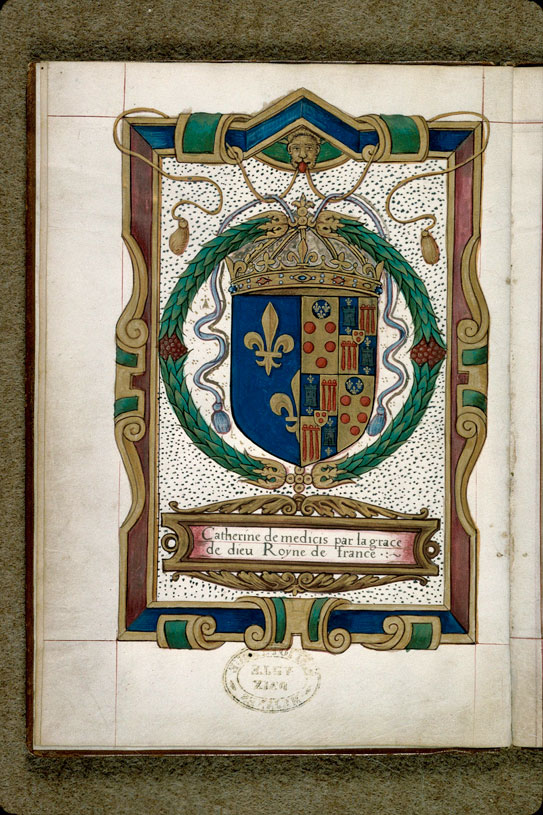 Catherine de medicis par la grace
de dieu Royne de france